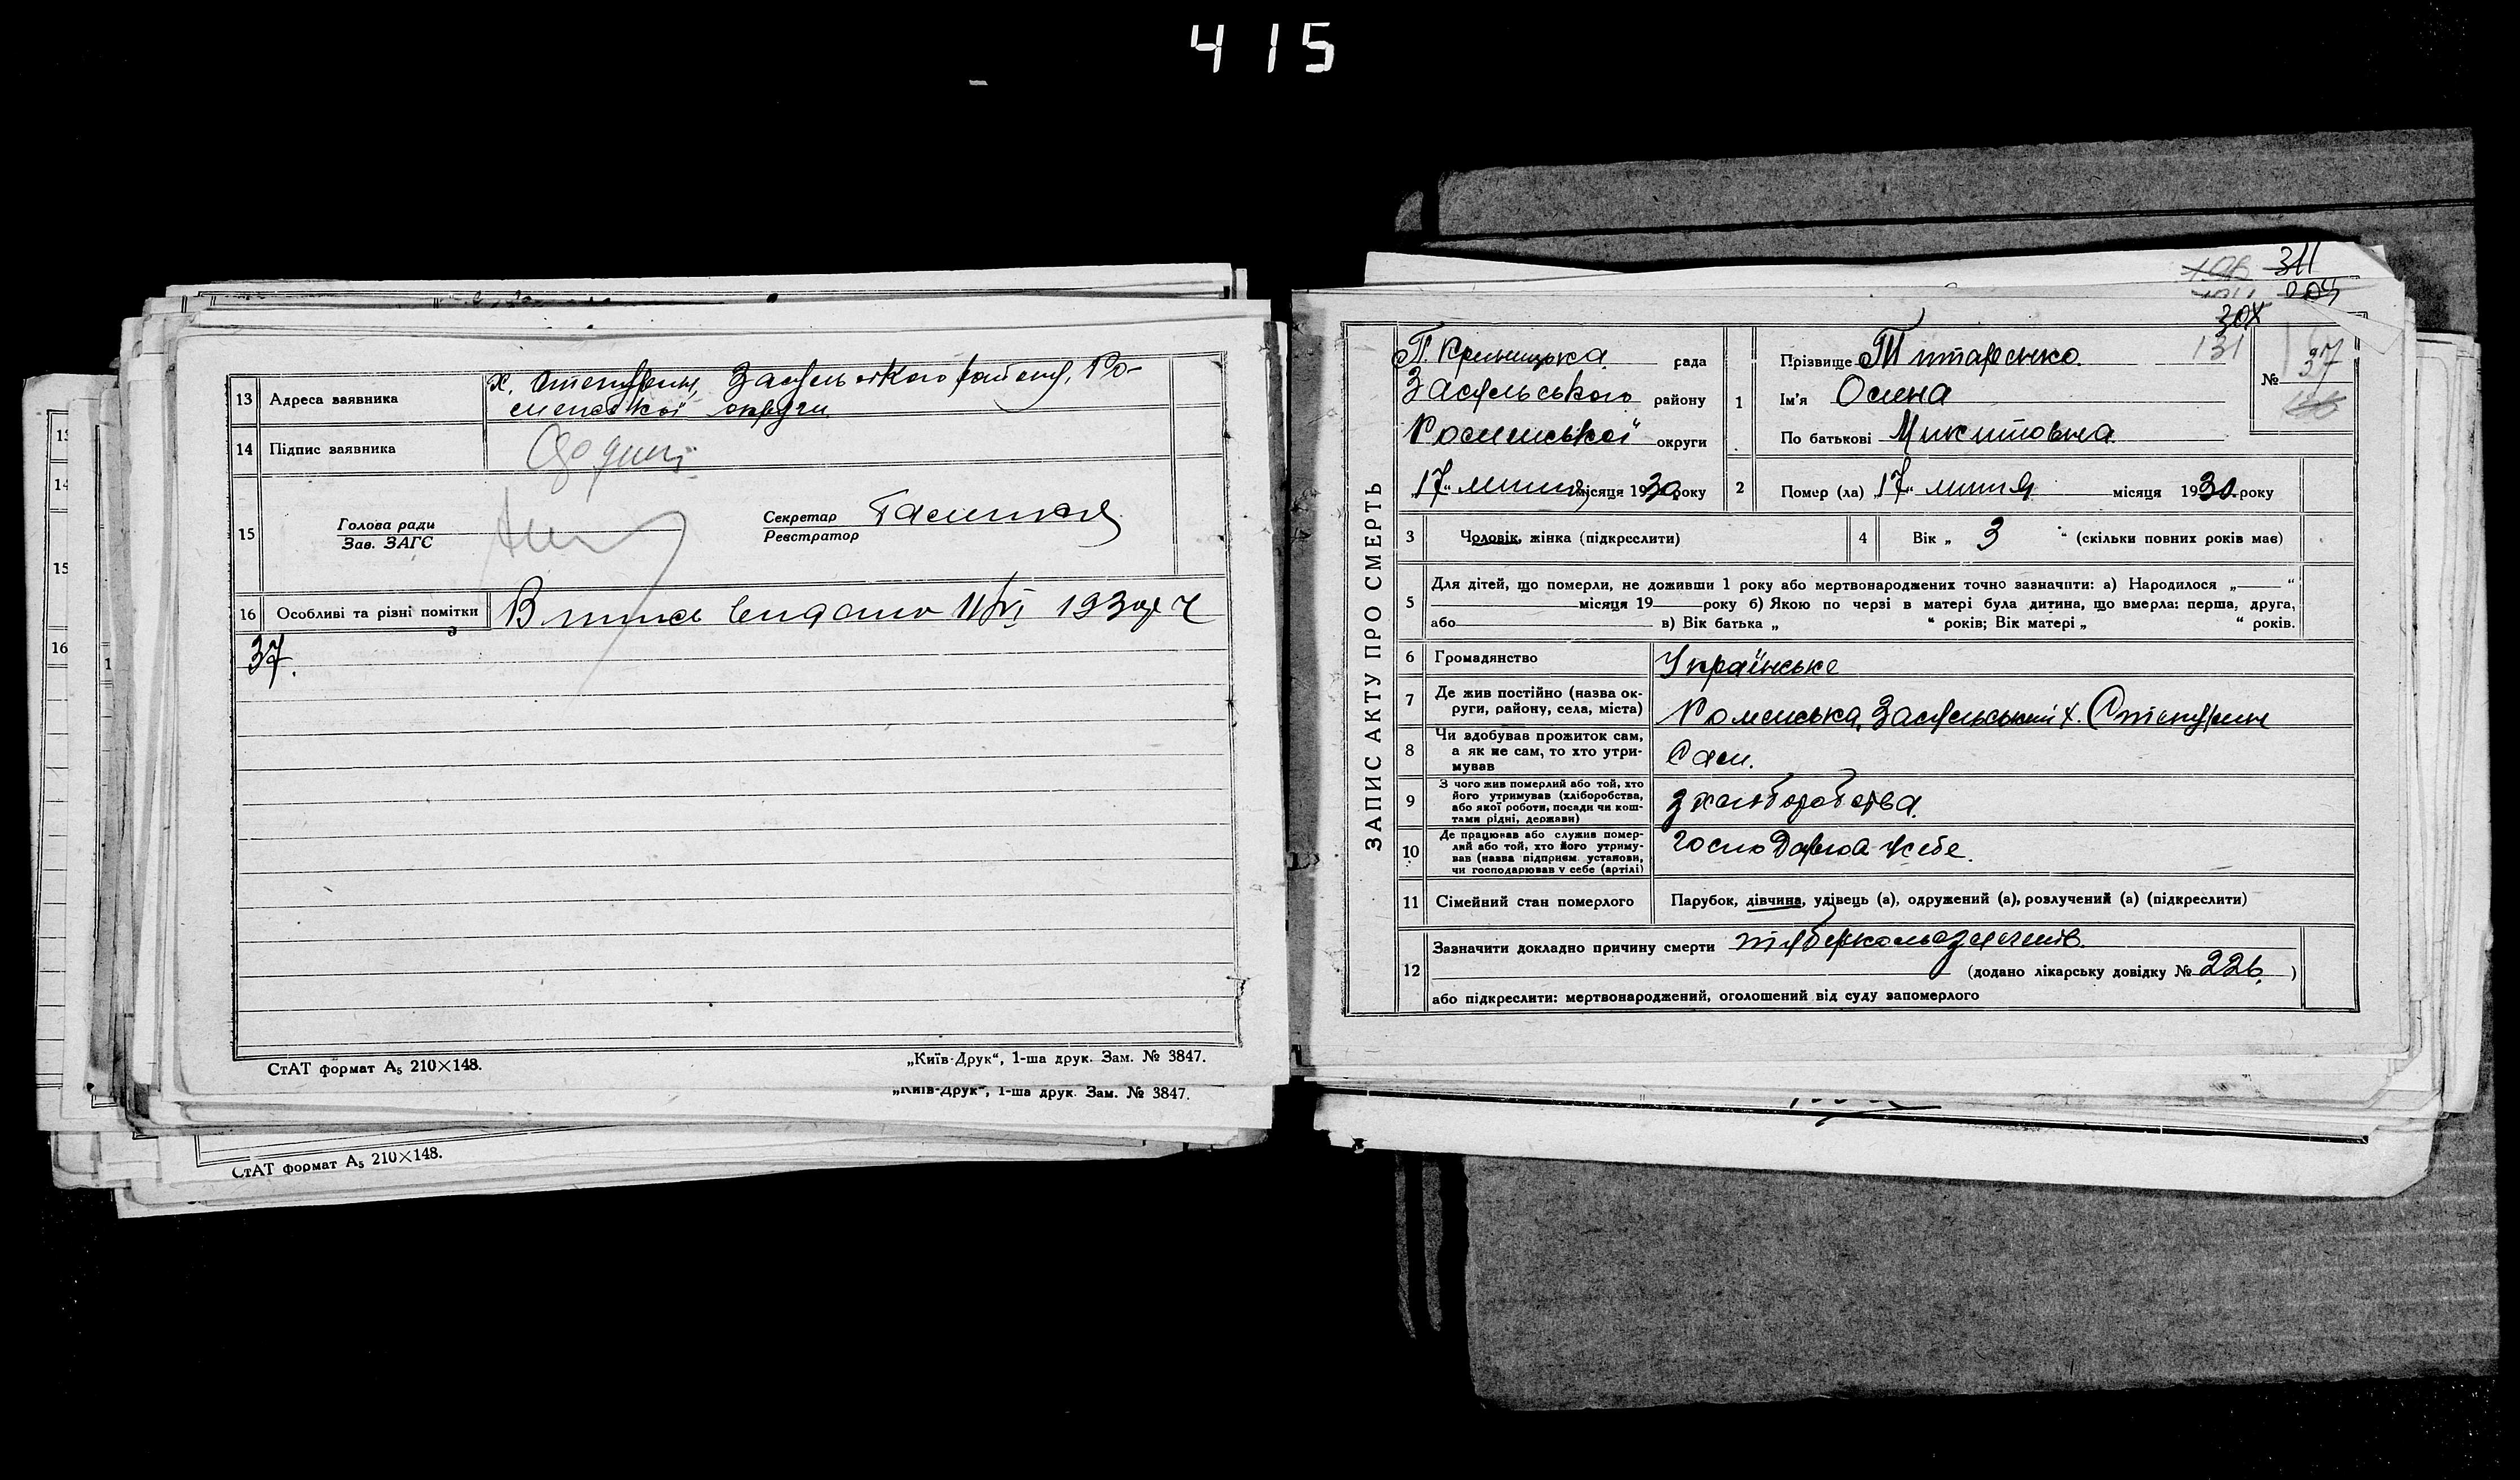 415
13 Адреса заявника
х. Засульського району, Ро-
менської округи
14 Підпис заявника
15 Голова ради
Зав. ЗАГС
Секретар
Реєстратор
16 Особливі та різні помітки
видано
37.
СтАТ формат А₅ 210×148.
„Київ-Друк“, 1-ша друк. Зам. № 3847.
„Київ-Друк“, 1-ша друк. Зам. № 3847.
СтАТ формат А₅ 210×148.
311
131
ЗАПИС АКТУ ПРО СМЕРТЬ
рада
Засульського району
Роменської округи
„17“ липня місяця 1930 року
1 Прізвище Титаренко
Ім'я Олена
По батькові Микитовна
№ 37
2 Помер (ла) „17“ липня місяця 1930 року
3 Чоловік, жінка (підкреслити)
4 Вік „ 3 “ (скільки повних років має)
5 Для дітей, що померли, не доживши 1 року або мертвонароджених точно зазначити: а) Народилося „ “
місяця 19 року б) Якою по черзі в матері була дитина, що вмерла: перша, друга,
або в) Вік батька „ “ років; Вік матері „ “ років.
6 Громадянство Українське
7 Де жив постійно (назва ок-
руги, району, села, міста) Роменська, Засульський х.
8 Чи здобував прожиток сам,
а як не сам, то хто утри-
мував Сам.
9 З чого жив померлий або той, хто
його утримував (хліборобства,
або якої роботи, посади чи кош-
тами рідні, держави) з хліборобства.
10 Де працював або служив помер-
лий або той, хто його утриму-
вав (назва підприєм. установи,
чи господарював у себе (артілі)
11 Сімейний стан померлого Парубок, дівчина, удівець (а), одружений (а), розлучений (а) (підкреслити)
12 Зазначити докладно причину смерти
(додано лікарську довідку № 226 )
або підкреслити: мертвонароджений, оголошений від суду запомерлого